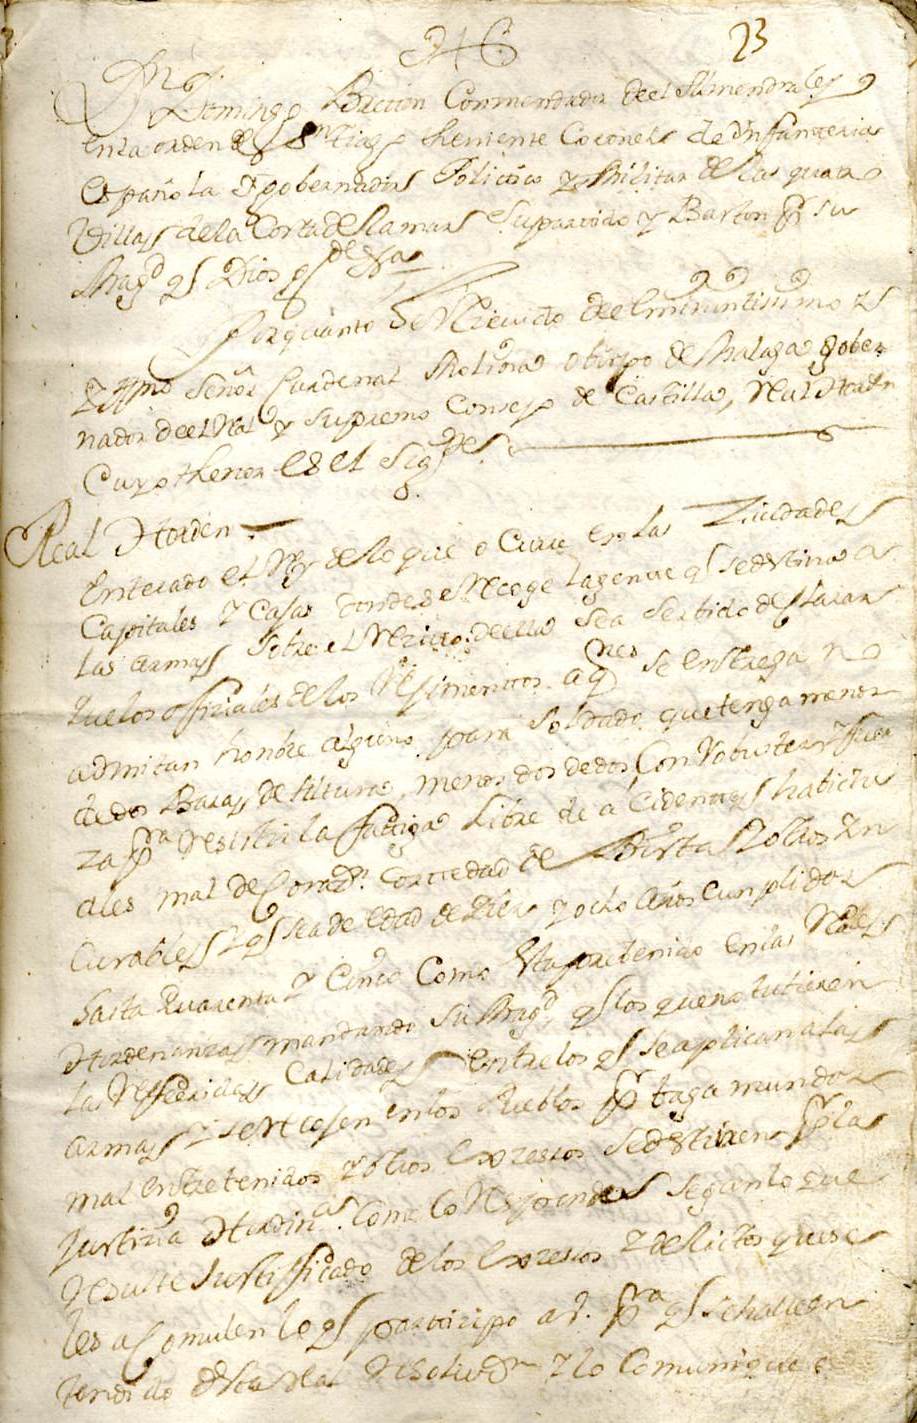 23
Dn Domingo Bretton Commendador de el Almendralejo
en la orden de Sntiago theniente Coronel de Ynfanteria
española Gobernador Politico y Militar de las quatro
Villas de la Costa de la mar Su partido y Baston pr su
Magd q Dios gde &a
Por quanto he Rezivido de el Eminentisimo y
Yllmo Señor Cardenal Molina obispo de Malaga gober
nador de el Rl y Supremo Consejo de Castilla, Real Horden
Cuyo thenor es el sigte
Real Horden
Enterado el Rey de lo que ocurre en las Ziudades
Capitales y Casas donde se Recoge la gente q se destina a
las armas sobre el Rezivo de ella sea servido declarar
que los offiziales de los Rejimientos a qnes se entrega no
admitan honbre alguno para Soldado que tenga menos
de dos Baras de Altura, menos dos dedos Con Robustez y fuer
za pa Resistir la fatiga Libre de acidentes habitu
ales mal de Corazn Cortedad de Bista y otros Yn
curables y q sea de edad de Diez y ocho años cumplidos
hasta quarenta y Cinco Como esta prebenido en las Reales
Hordenanzas mandando Su Magd q los que no tubieren
las Referidas Calidades entre los q se aplican a las
armas y se Recojen en los Pueblos pr bagamundos
mal entretenidos y otros exzesos se destinen pr la
Justizia Hordina Como Corresponde segun lo que
Resulte Justifficado de los exzesos y delictos que se
les acomulen lo q partizipo a V. pa q se halle en
tendido de esta Real Resoluzn y lo Comunique